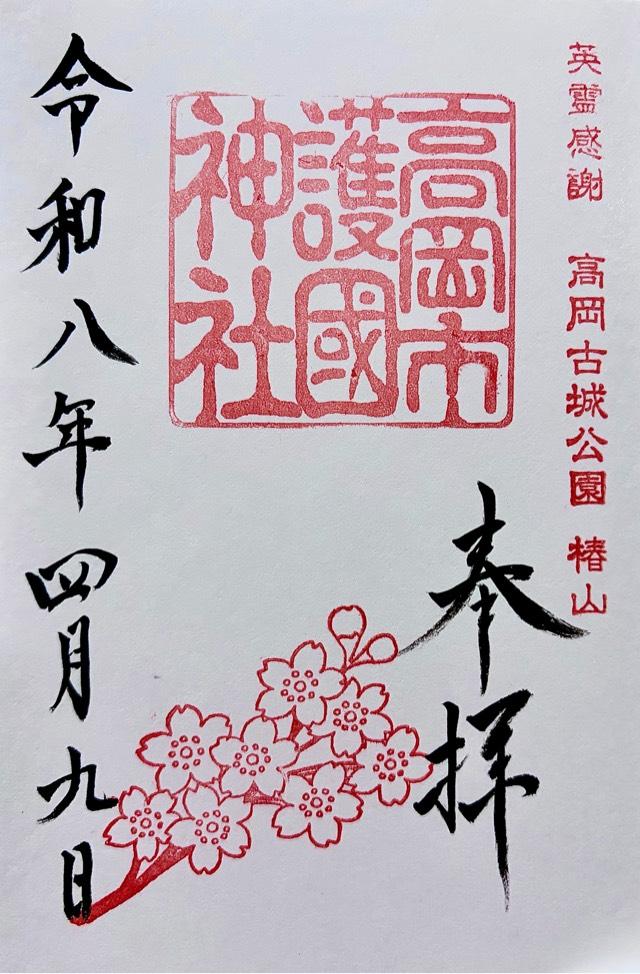 英霊感謝 高岡古城公園 椿山
奉拝
高岡市
護國
神社
令和八年四月九日